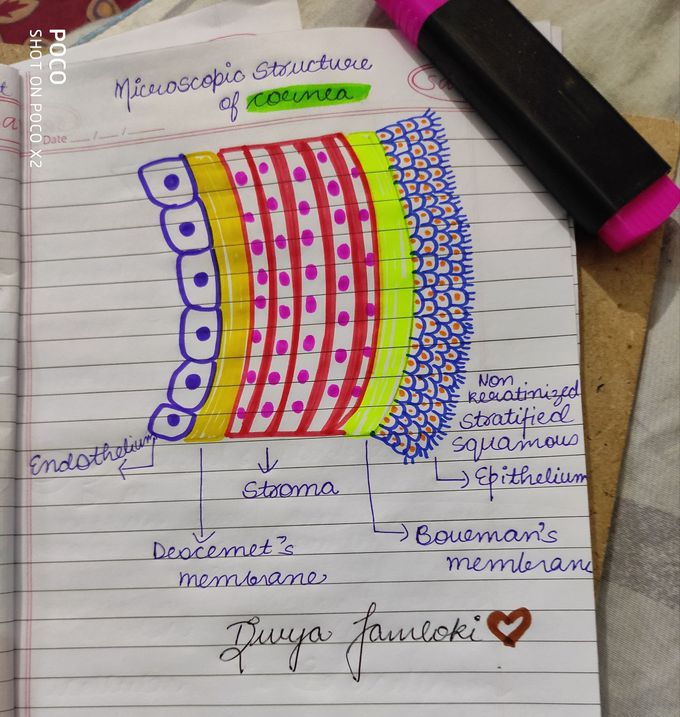 POCO
SHOT ON POCO X2
Microscopic Structure
of cornea
Date
Non
keratinized
Stratified
Squamous
Epithelium
Endothelium
Stroma
Descemet's
membrane
Bowman's
membrane
Divya Jamloki